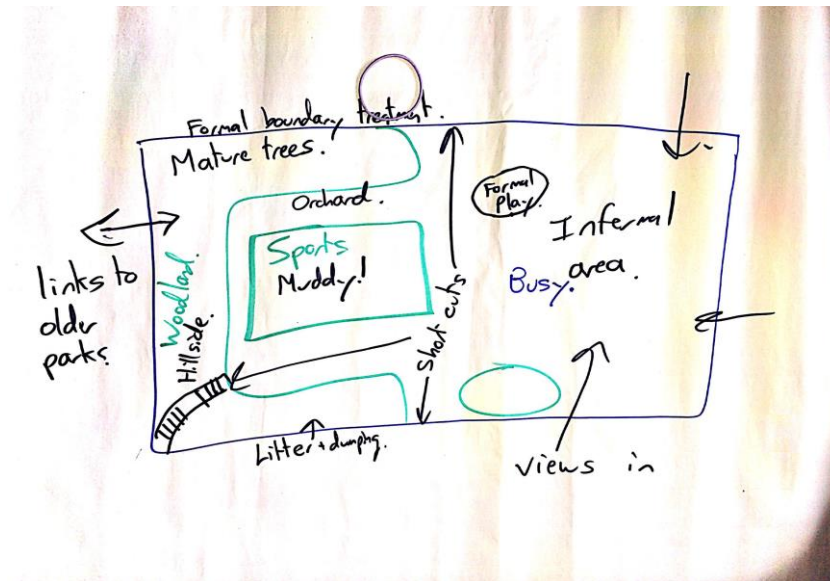 Formal boundary treatment.
Mature trees.
Orchard.
Formal
Play.
Informal
area.
Busy.
Sports
Muddy!
links to
older
parks
Woodland.
Hillside.
Short cuts
Litter + dumping.
views in